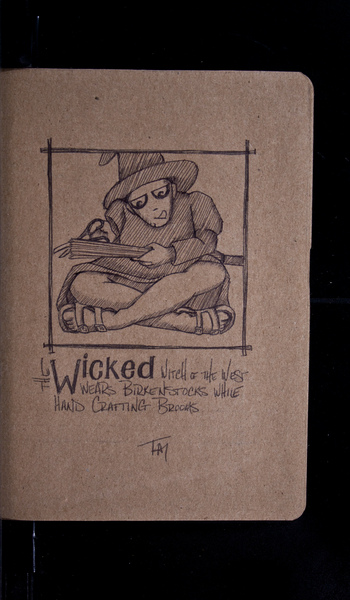 THE Wicked Witch of the West
Wears Birkenstocks While
Hand Crafting Brooms